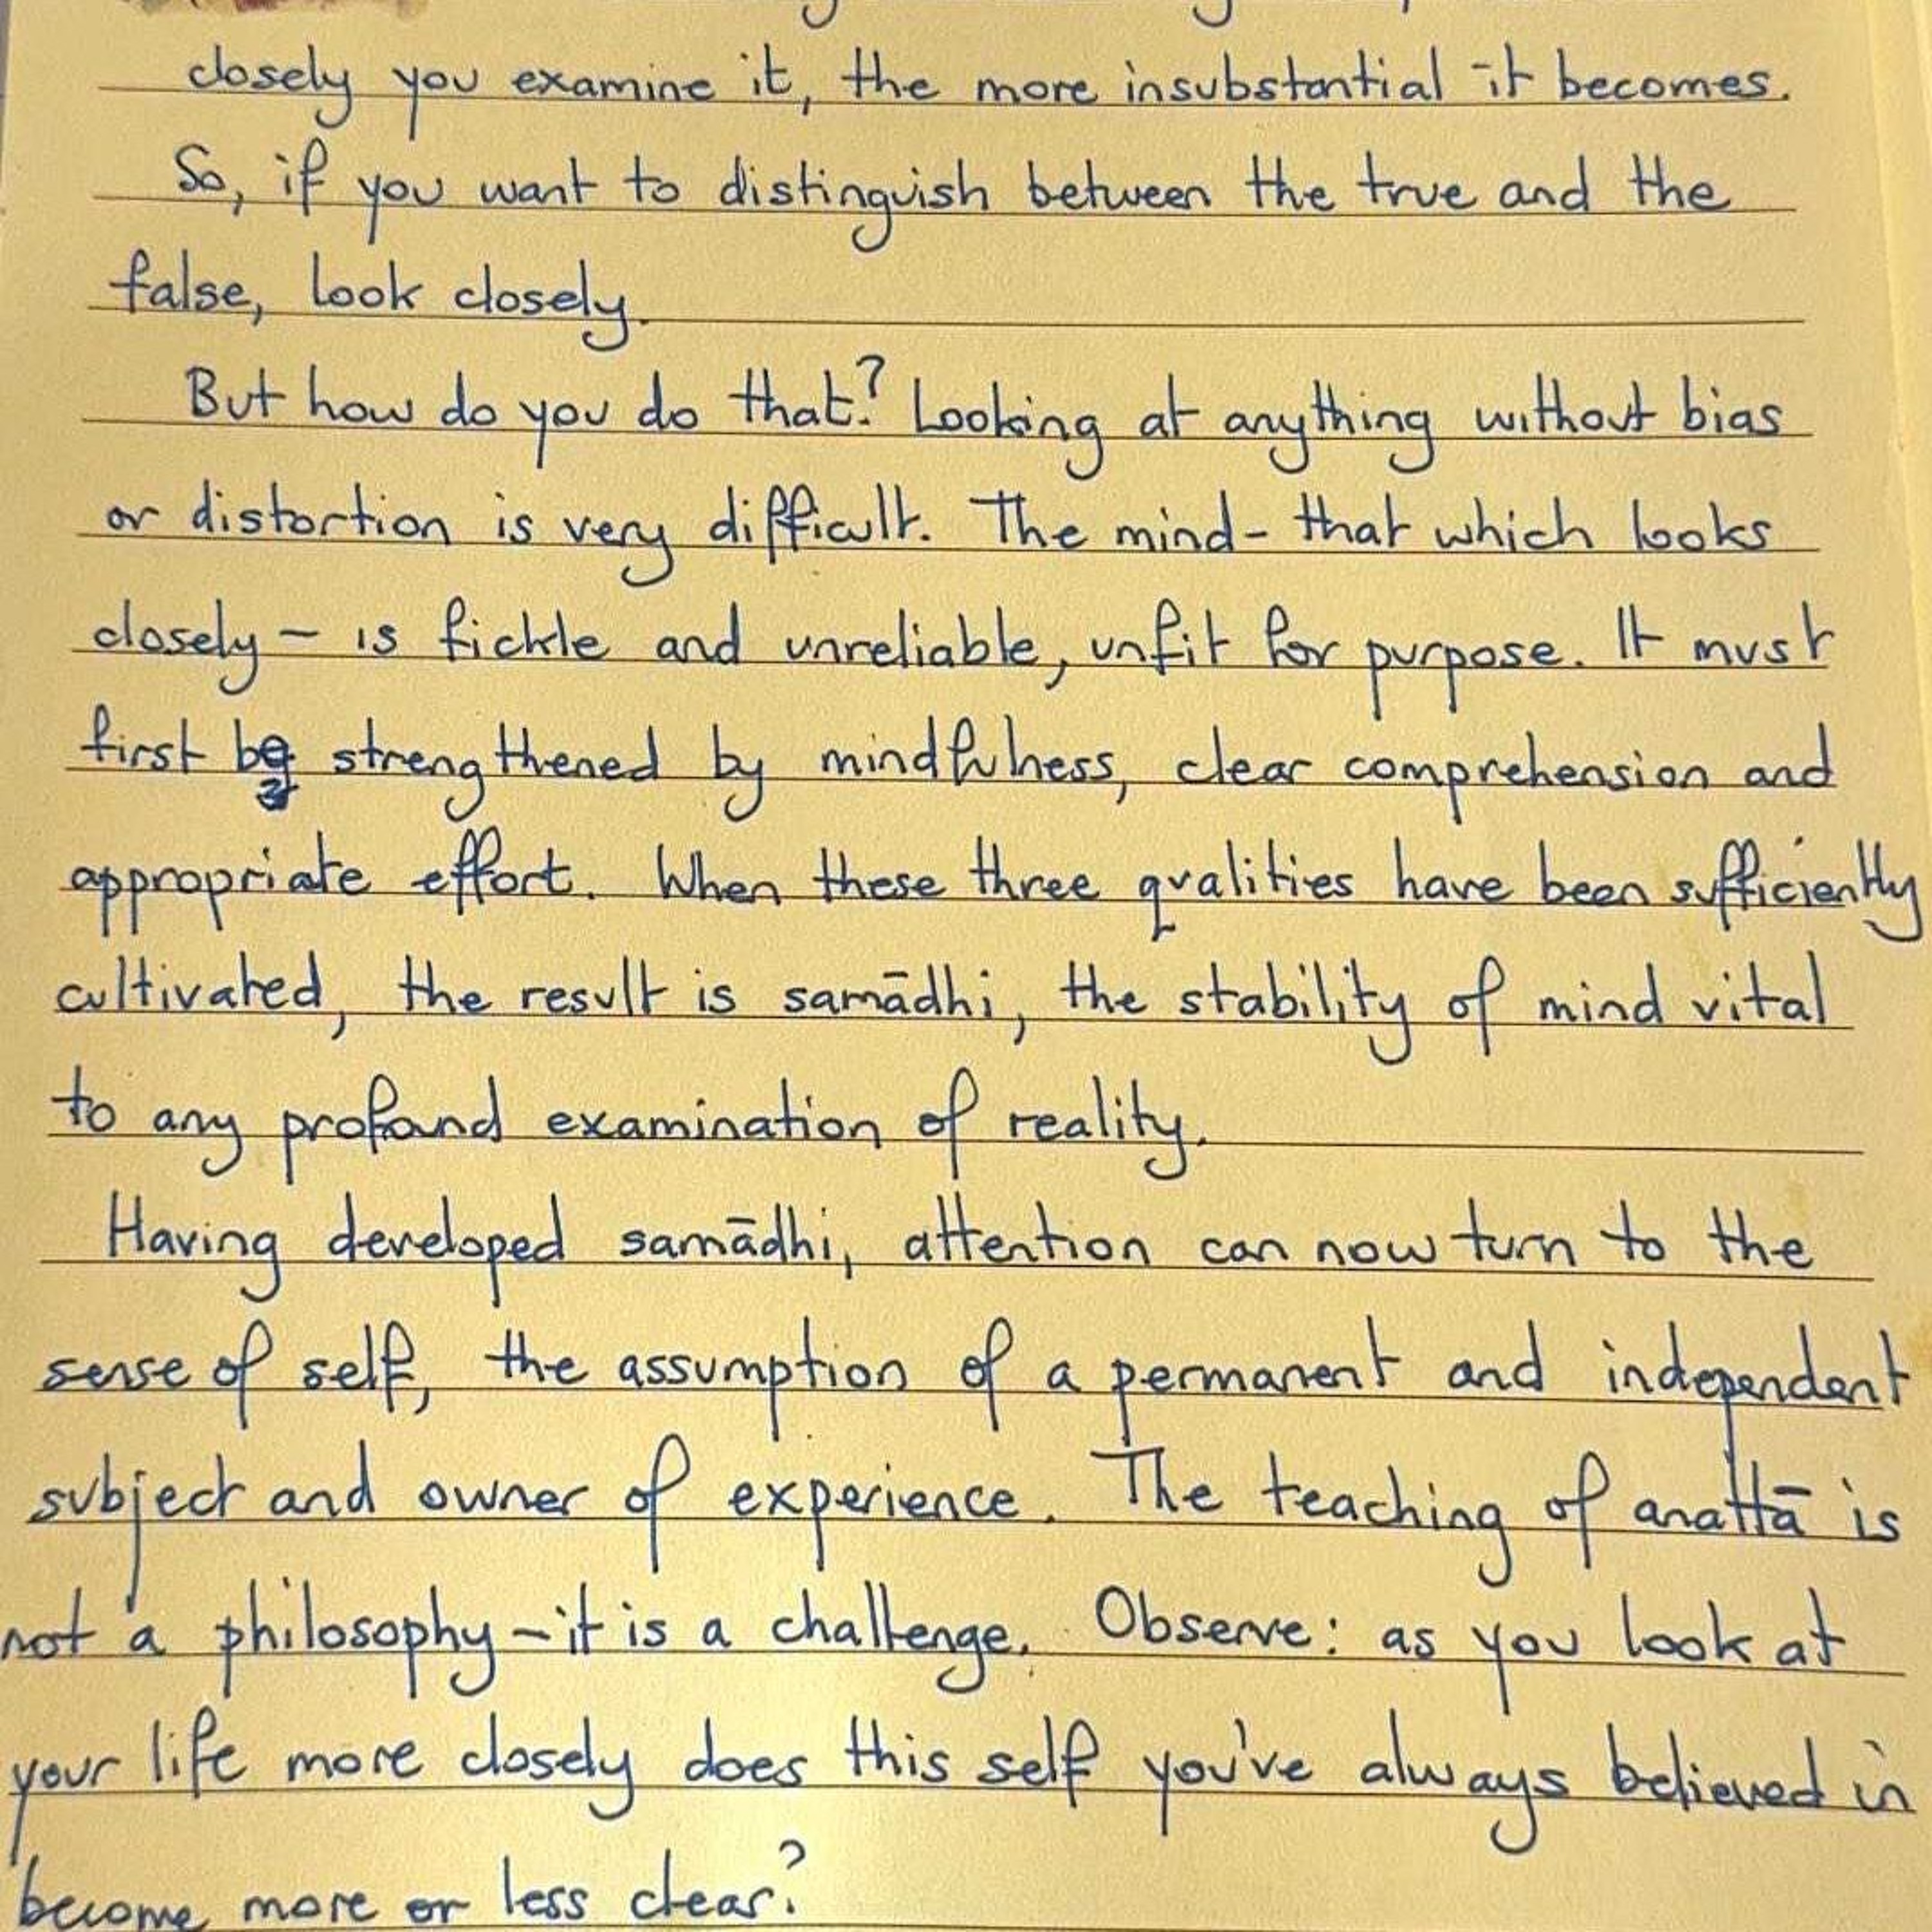 closely you examine it, the more insubstantial it becomes.
So, if you want to distinguish between the true and the
false, look closely.
But how do you do that? Looking at anything without bias
or distortion is very difficult. The mind - that which looks
closely - is fickle and unreliable, unfit for purpose. It must
first be strengthened by mindfulness, clear comprehension and
appropriate effort. When these three qualities have been sufficiently
cultivated, the result is samādhi, the stability of mind vital
to any profound examination of reality.
Having developed samādhi, attention can now turn to the
sense of self, the assumption of a permanent and independent
subject and owner of experience. The teaching of anattā is
not a philosophy - it is a challenge. Observe: as you look at
your life more closely does this self you've always believed in
become more or less clear?